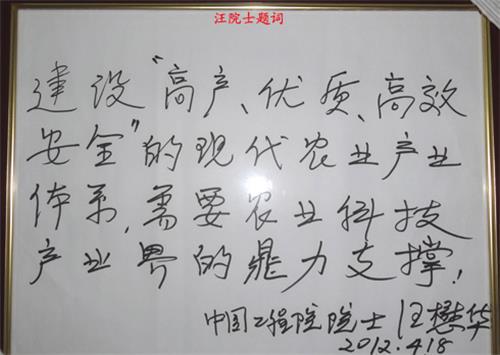 汪院士题词
建设"高产、优质、高效
安全"的现代农业产业
体系,需要农业科技
产业界的鼎力支撑!
中国工程院院士 汪懋华
2012.4.18